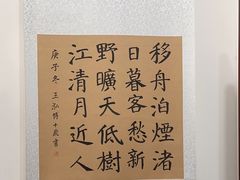 移舟泊煙渚
日暮客愁新
野曠天低樹
江清月近人
庚子冬 王泓 十歲書